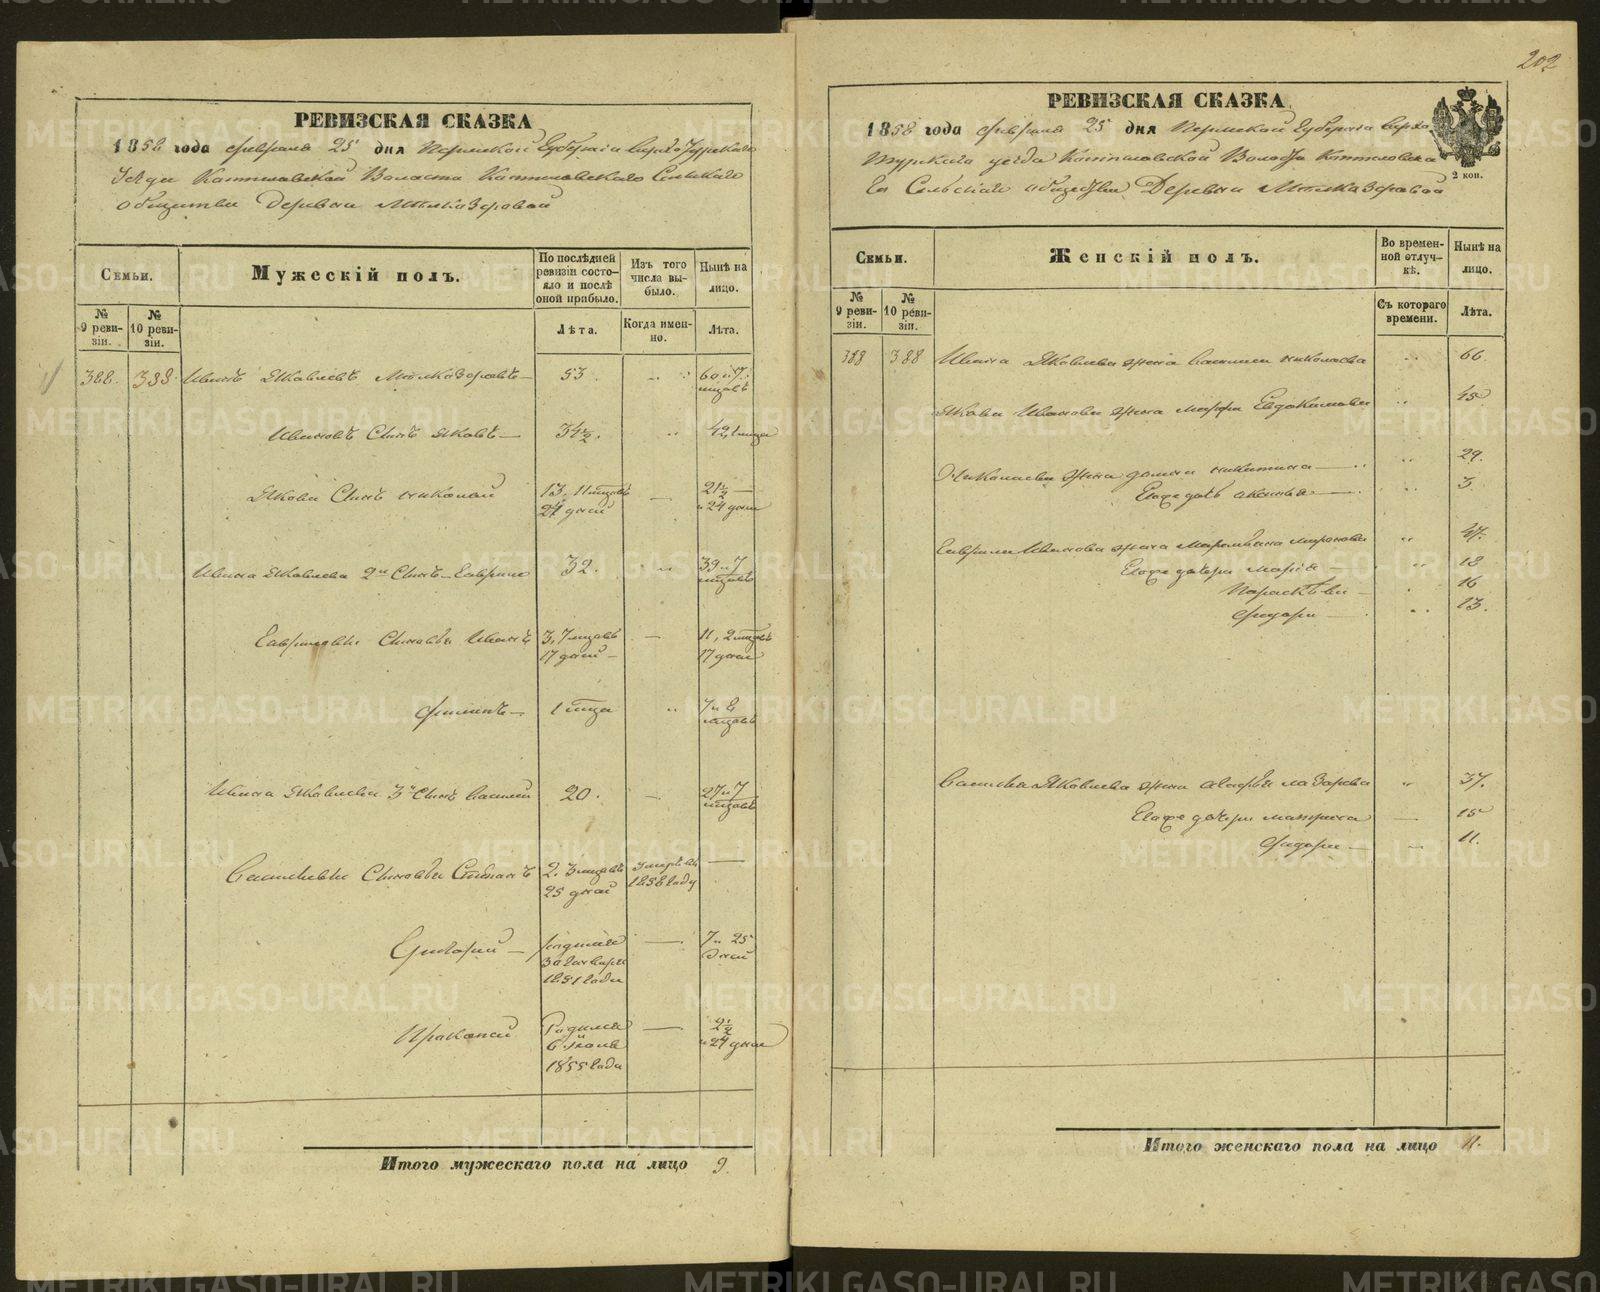 202
РЕВИЗСКАЯ СКАЗКА
1858 года февраля 25 дня Пермской Губернiи Верхотурскаго
Уезда Волости Сельскаго
общества Деревни
Семьи.
Мужескій полъ.
По послѣдней ревизіи состояло и послѣ оной прибыло.
Изъ того числа выбыло.
Нынѣ на лицо.
№ 9 ревизіи.
№ 10 ревизіи.
Лѣта.
Когда именно.
Лѣта.
388. 388. Иванъ Яковлевъ 53. 60 и 7 мцовъ
Ивановъ Сынъ Яковъ 34½.
Якова Сынъ Николай 13. 11 мцовъ 24 дней 21½ и 24 дня
Ивана Яковлева 2й Сынъ Гаврило 32. 39 и 7 мцовъ
Гавриловы Сыновья Иванъ 3, 7 мцовъ 17 дней 11, 2 мцовъ 17 дней
Филипъ 1 мца 7 и 8 мцовъ
Ивана Яковлева 3й Сынъ Василей 20. 27 и 7 мцовъ
Васильевы Сыновья Степанъ 2. 3 мцовъ 25 дней умеръ въ 1858 году
Григорий родился 30 Генваря 1851 года 7 и 25 дней
Прокопей Родился 6 Июля 1855 года 2½ и 24 дня
Итого мужескаго пола на лицо 9.
РЕВИЗСКАЯ СКАЗКА
1858 года февраля 25 дня Пермской Губернiи Верхо
турскаго уезда Волости
Сельскаго общества Деревни
2 коп.
Семьи.
Женскій полъ.
Во временной отлучкѣ.
Нынѣ на лицо.
№ 9 ревизіи.
№ 10 ревизіи.
Съ котораго времени.
Лѣта.
388 388 Ивана Яковлева жена Николаева 66.
Якова Иванова жена Марфа Евдокимова 45
Николаева жена Домна Никитина 29.
Его дочь Аксинья 3
Гаврила Иванова жена Миронова 47.
Его дочери Марья 18
Парасковья 16
Федора 13.
Василья Яковлева жена Лазарева 37.
Его дочери Матрена 15
Федора 11.
Итого женскаго пола на лицо 11.
METRIKI.GASO-URAL.RU